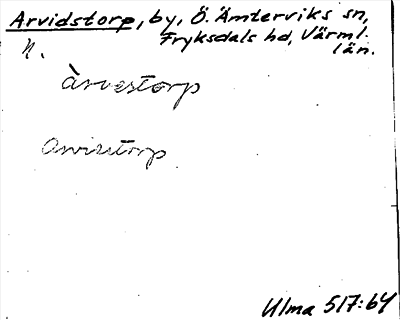 Arvidstorp, by, Ö. Ämterviks sn,
Fryksdals hd, Värml.
län.
n.
àrvestorp
Ulma 517:64